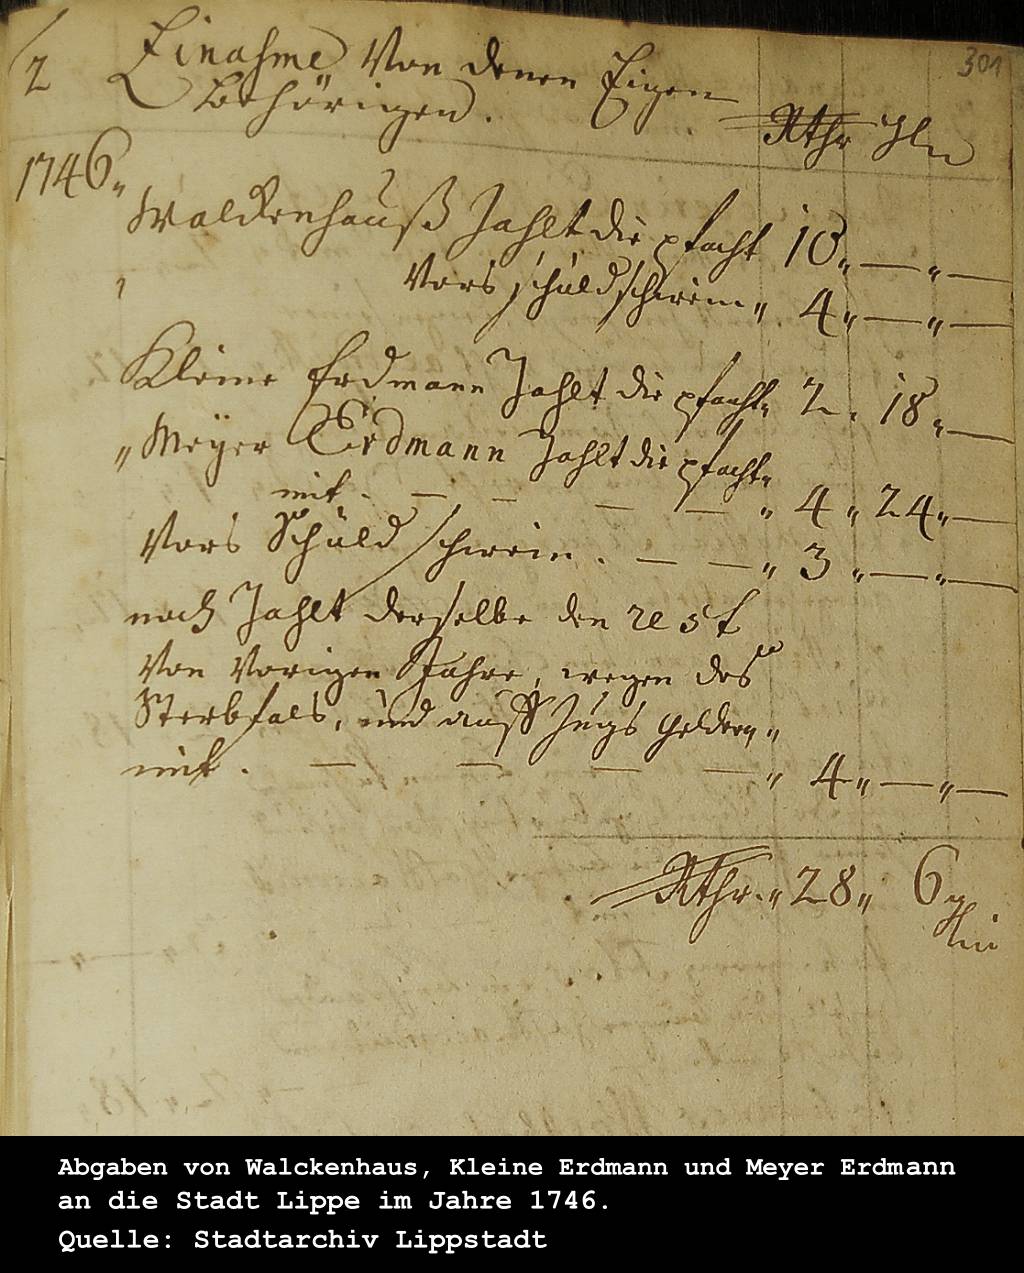 301
2 Einahme Von denen Eigen
Behörigen. Rthr ßlr
1746„
Walckenhauß Zahlt die pfacht 10„ — „ —
Vors schuldschwein „ 4 „ — „ —
Kleine Erdmann Zahlt die pfacht„ 2 „ 18 „ —
„ Meÿer Erdmann Zahlt die pfacht„
mit . — — — — „ 4 „ 24 „ —
Vors Schuld schwein . — — „ 3 „ — „ —
noch Zahlt derselbe den Rest
Von Vorigen Jahre, wegen des
Sterbfals, und auff Zugs geldern „
mit . — — — — „ 4 „ — „ —
Rthr. „ 28 „ 6
Abgaben von Walckenhaus, Kleine Erdmann und Meyer Erdmann
an die Stadt Lippe im Jahre 1746.
Quelle: Stadtarchiv Lippstadt